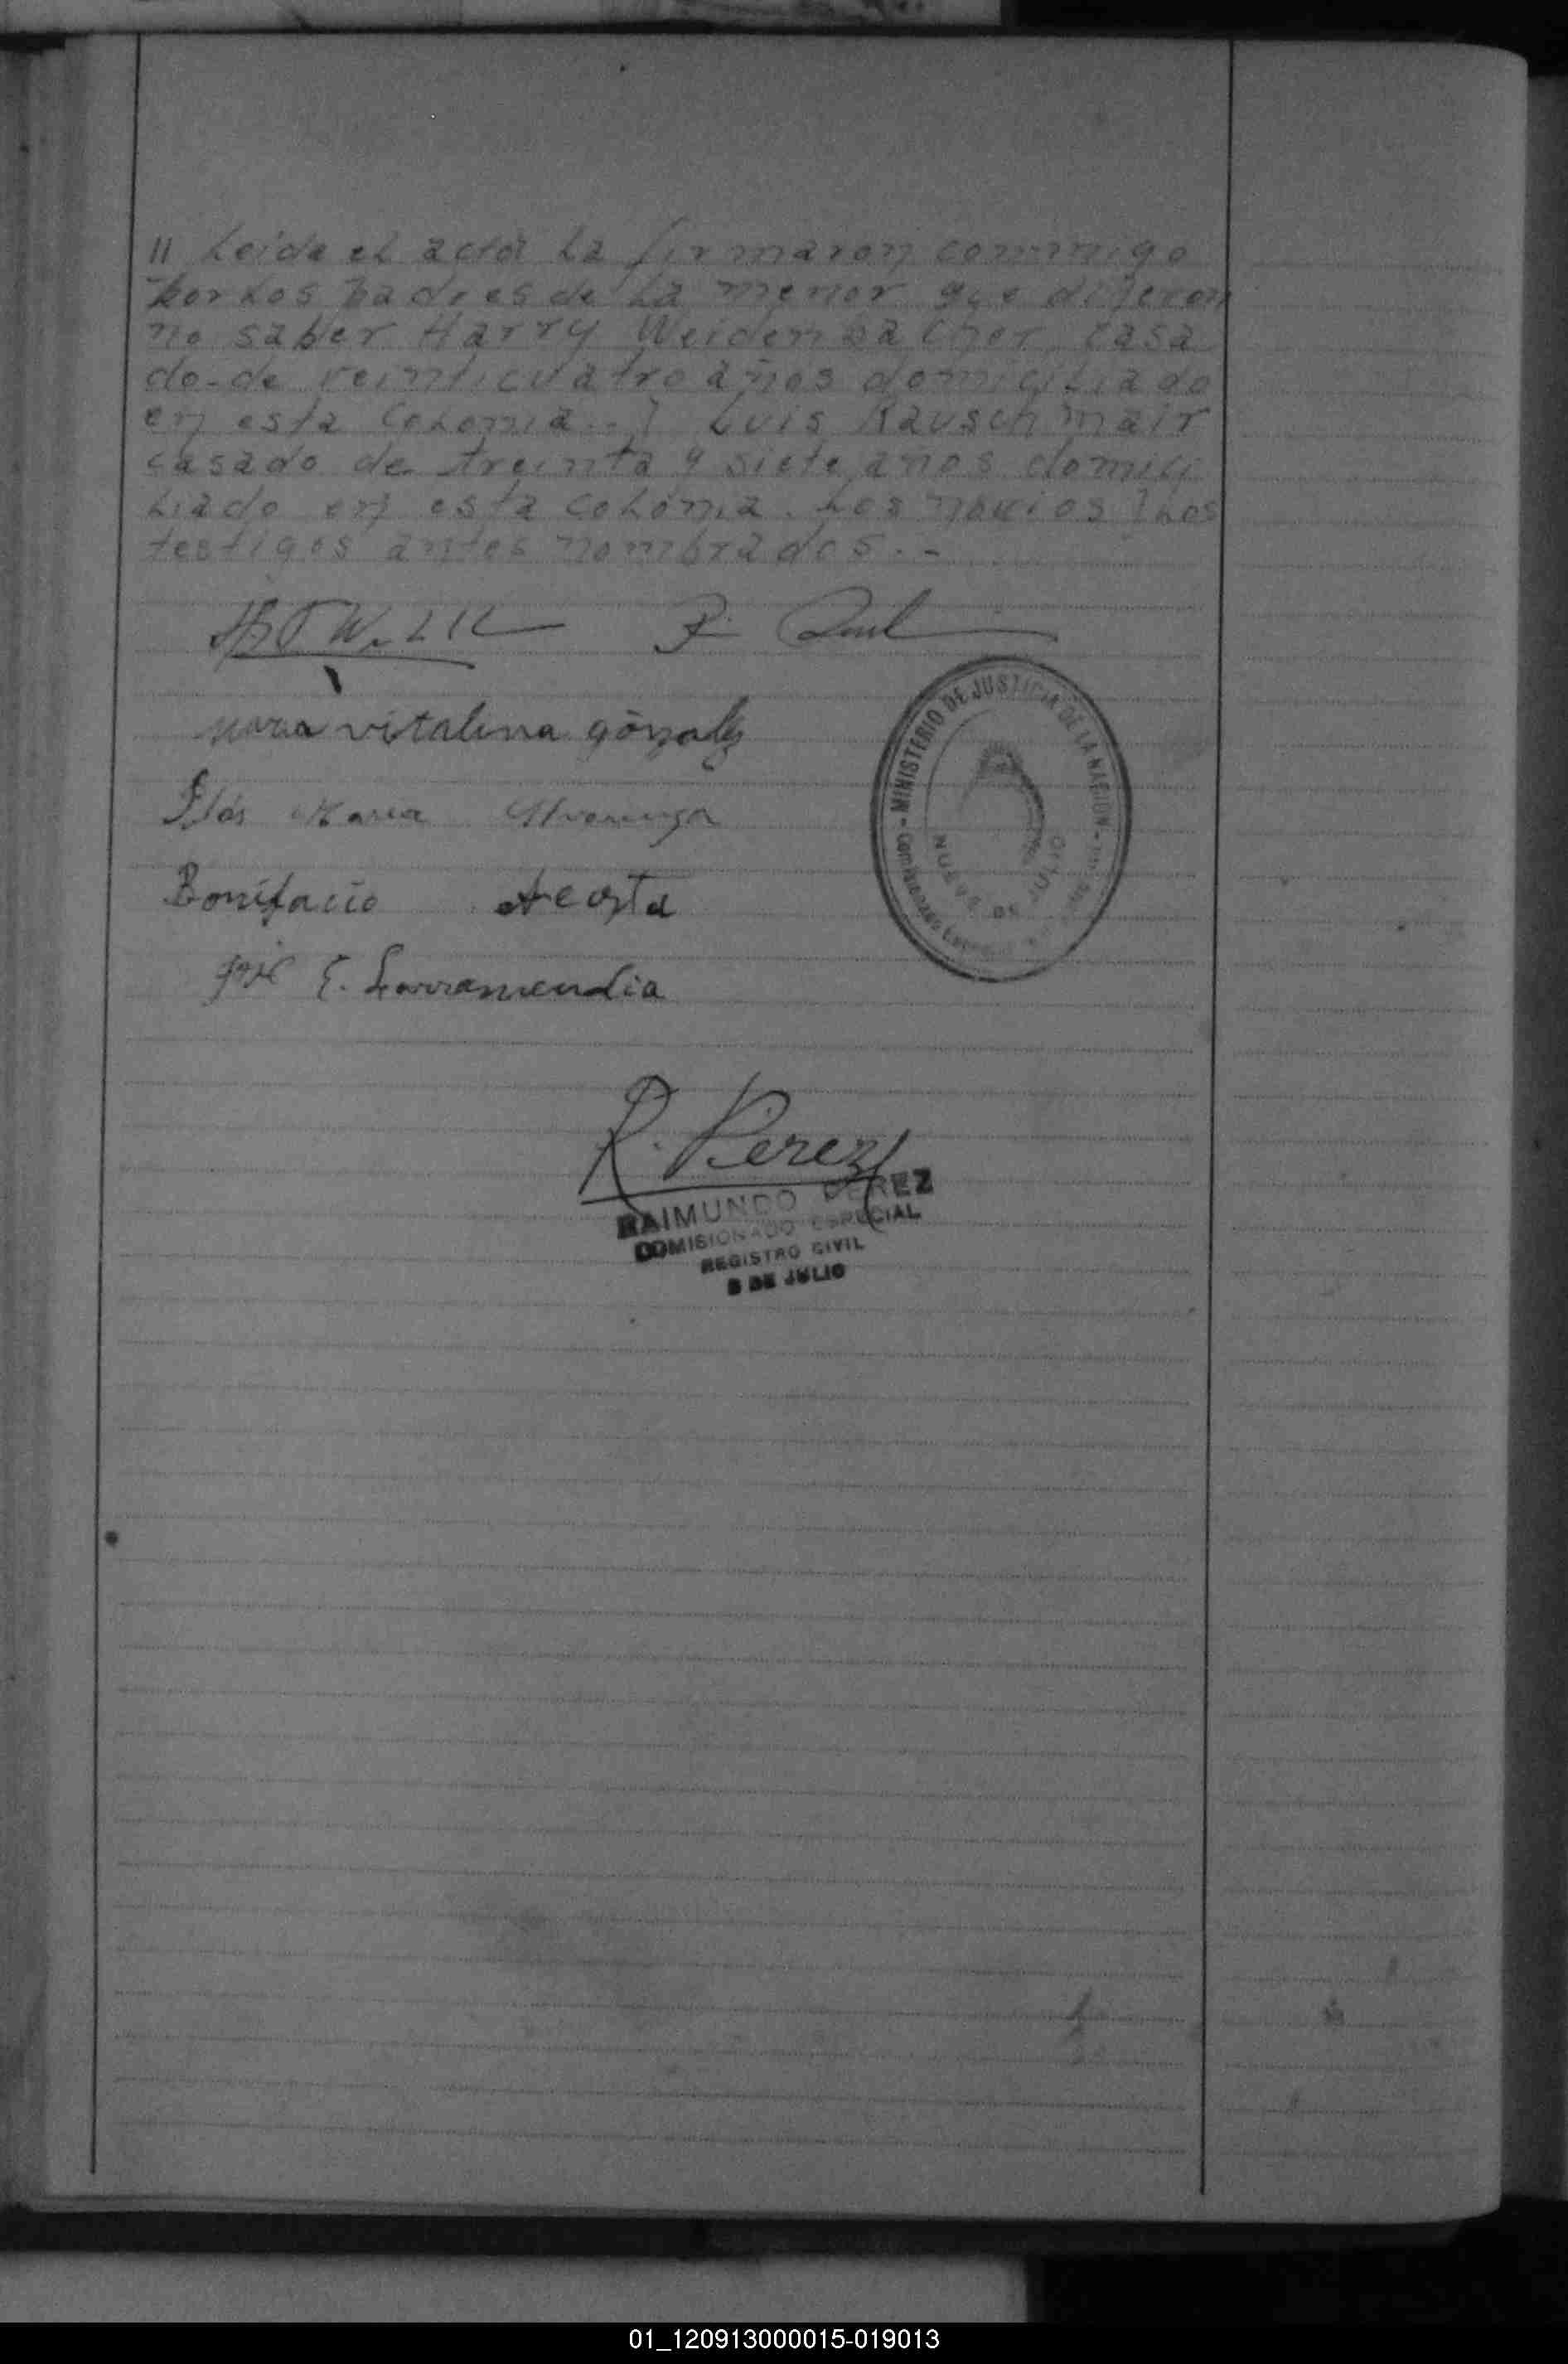 11 Leida el acta la firmaron conmmigo
por los padres de la menor que dijeron
no saber Harry Weidenbacher casa
do-de veinticuatro años domiciliado
en esta Colonia.. I Luis Rauschmair
casado de treinta y siete años domici
liado en esta colonia. Los novios I los
testigos antes nombrados..-
maria vitalina gónzalez
Blás Maria
Bonifacio Acosta
José E. Larramendia
MINISTERIO DE JUSTICIA DE LA NACION
NUEVE DE JULIO
R. Perez
RAIMUNDO PEREZ
COMISIONADO ESPECIAL
REGISTRO CIVIL
9 DE JULIO
01_120913000015-019013